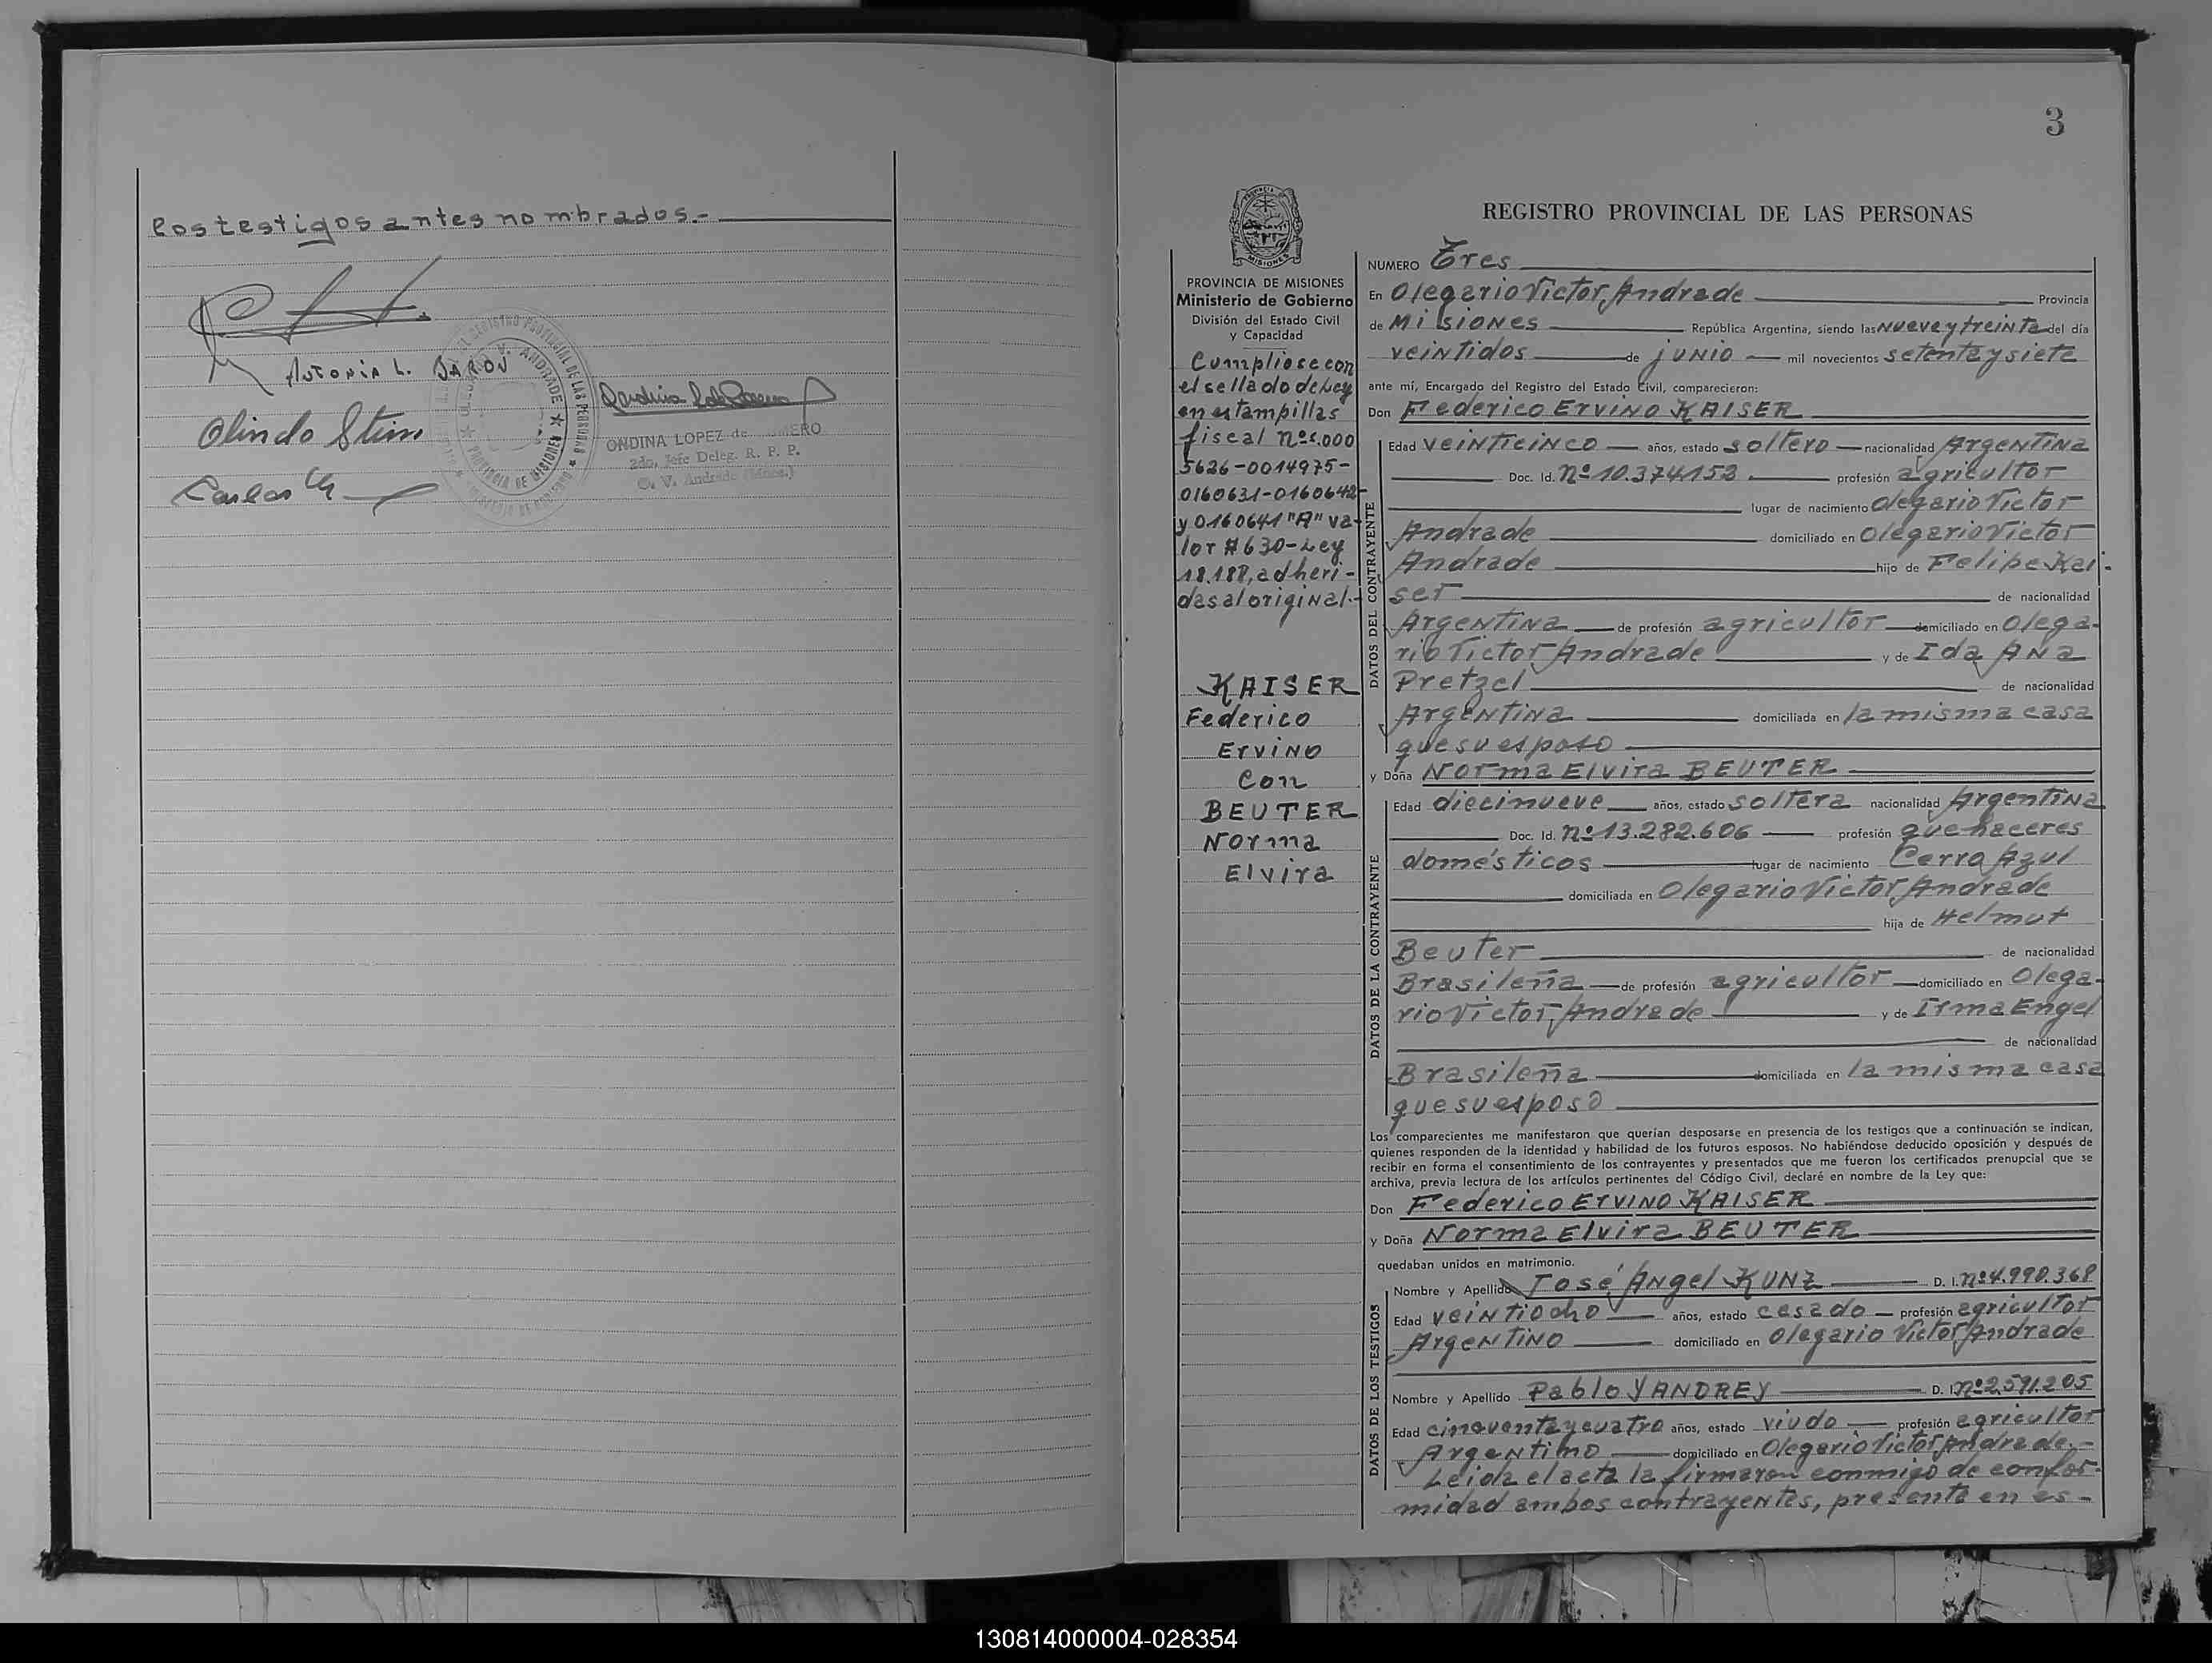 los testigos antes nombrados.-
Antonia L. Jarov
Olindo Stein
Carlos
ONDINA LOPEZ de
2do. Jefe Deleg. R. P. P.
O. V. Andrade
3
REGISTRO PROVINCIAL DE LAS PERSONAS
PROVINCIA DE MISIONES
Ministerio de Gobierno
División del Estado Civil
y Capacidad
Cumpliose con
el sellado de Ley
en estampillas
fiscal nos.000
5626-0014975-
0160631-0160642-
y 0160641 "A" va-
lor $ 630-Ley
18.188, adheri-
das al original.-
KAISER
Federico
Ervino
con
BEUTER
Norma
Elvira
NUMERO Tres
En Olegario Victor Andrade Provincia
de Misiones República Argentina, siendo las nueve y treinta del día
veintidos de junio mil novecientos setenta y siete
ante mí, Encargado del Registro del Estado Civil, comparecieron:
Don Federico Ervino KAISER
DATOS DEL CONTRAYENTE
Edad veinticinco años, estado soltero nacionalidad Argentina
Doc. Id. Nº 10.374.153 profesión agricultor
lugar de nacimiento Olegario Victor
Andrade domiciliado en Olegario Victor
Andrade hijo de Felipe Kai-
ser de nacionalidad
Argentina de profesión agricultor domiciliado en Olega-
rio Victor Andrade y de Ida Ana
Pretzel de nacionalidad
Argentina domiciliada en la misma casa
que su esposo
y Doña Norma Elvira BEUTER
DATOS DE LA CONTRAYENTE
Edad diecinueve años, estado soltera nacionalidad Argentina
Doc. Id. Nº 13.282.606 profesión quehaceres
domésticos lugar de nacimiento Cerro Azul
domiciliada en Olegario Victor Andrade
hija de Helmut
Beuter de nacionalidad
Brasileña de profesión agricultor domiciliado en Olega-
rio Victor Andrade y de Irma Engel
de nacionalidad
Brasileña domiciliada en la misma casa
que su esposo
Los comparecientes me manifestaron que querían desposarse en presencia de los testigos que a continuación se indican,
quienes responden de la identidad y habilidad de los futuros esposos. No habiéndose deducido oposición y después de
recibir en forma el consentimiento de los contrayentes y presentados que me fueron los certificados prenupcial que se
archiva, previa lectura de los artículos pertinentes del Código Civil, declaré en nombre de la Ley que:
Don Federico Ervino KAISER
y Doña Norma Elvira BEUTER
quedaban unidos en matrimonio.
DATOS DE LOS TESTIGOS
Nombre y Apellido José Angel KUNZ D. I. Nº 4.990.368
Edad veintiocho años, estado casado profesión agricultor
Argentino domiciliado en Olegario Victor Andrade
Nombre y Apellido Pablo YANDREY D. I. Nº 2.591.205
Edad cincuenta y cuatro años, estado viudo profesión agricultor
Argentino domiciliado en Olegario Victor Andrade.-
Leída el acta la firmaron conmigo de confor-
midad ambos contrayentes, presente en es-
130814000004-028354